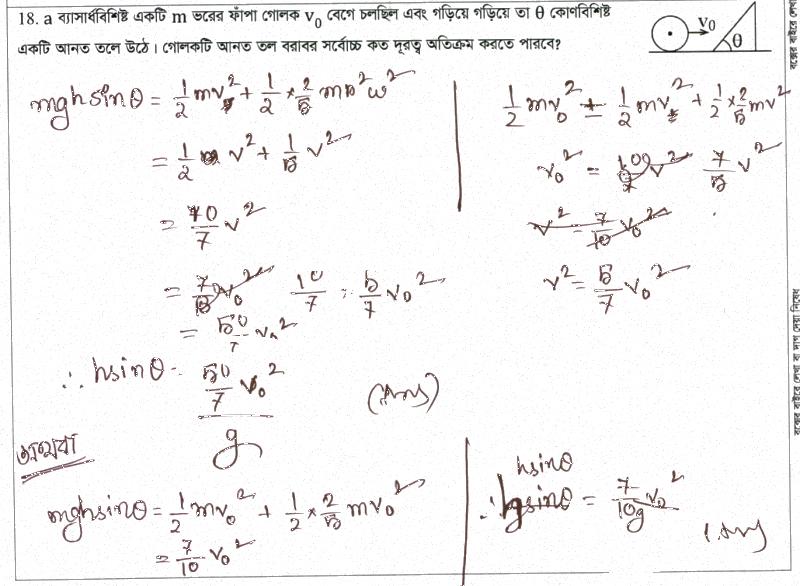 18. a ব্যাসার্ধবিশিষ্ট একটি m ভরের ফাঁপা গোলক v₀ বেগে চলছিল এবং গড়িয়ে গড়িয়ে তা θ কোণবিশিষ্ট
একটি আনত তলে উঠে। গোলকটি আনত তল বরাবর সর্বোচ্চ কত দূরত্ব অতিক্রম করতে পারবে?
v₀
θ
mgh sinθ = 1/2 mv² + 1/2 × 2/5 ma²ω²
= 1/2 v² + 1/5 v²
= 10/7 v²
10/7 · 5/7 v₀²
= 50/7 v₀²
∴ h sinθ = (50/7 v₀²)/g (Ans)
1/2 mv₀² = 1/2 mv² + 1/2 × 2/5 mv²
v₀² = 7/5 v²
v² = 5/7 v₀²
অথবা
mgh sinθ = 1/2 mv₀² + 1/2 × 2/5 mv₀²
= 7/10 v₀²
h sinθ
∴ = 7v₀²/10g (Ans)